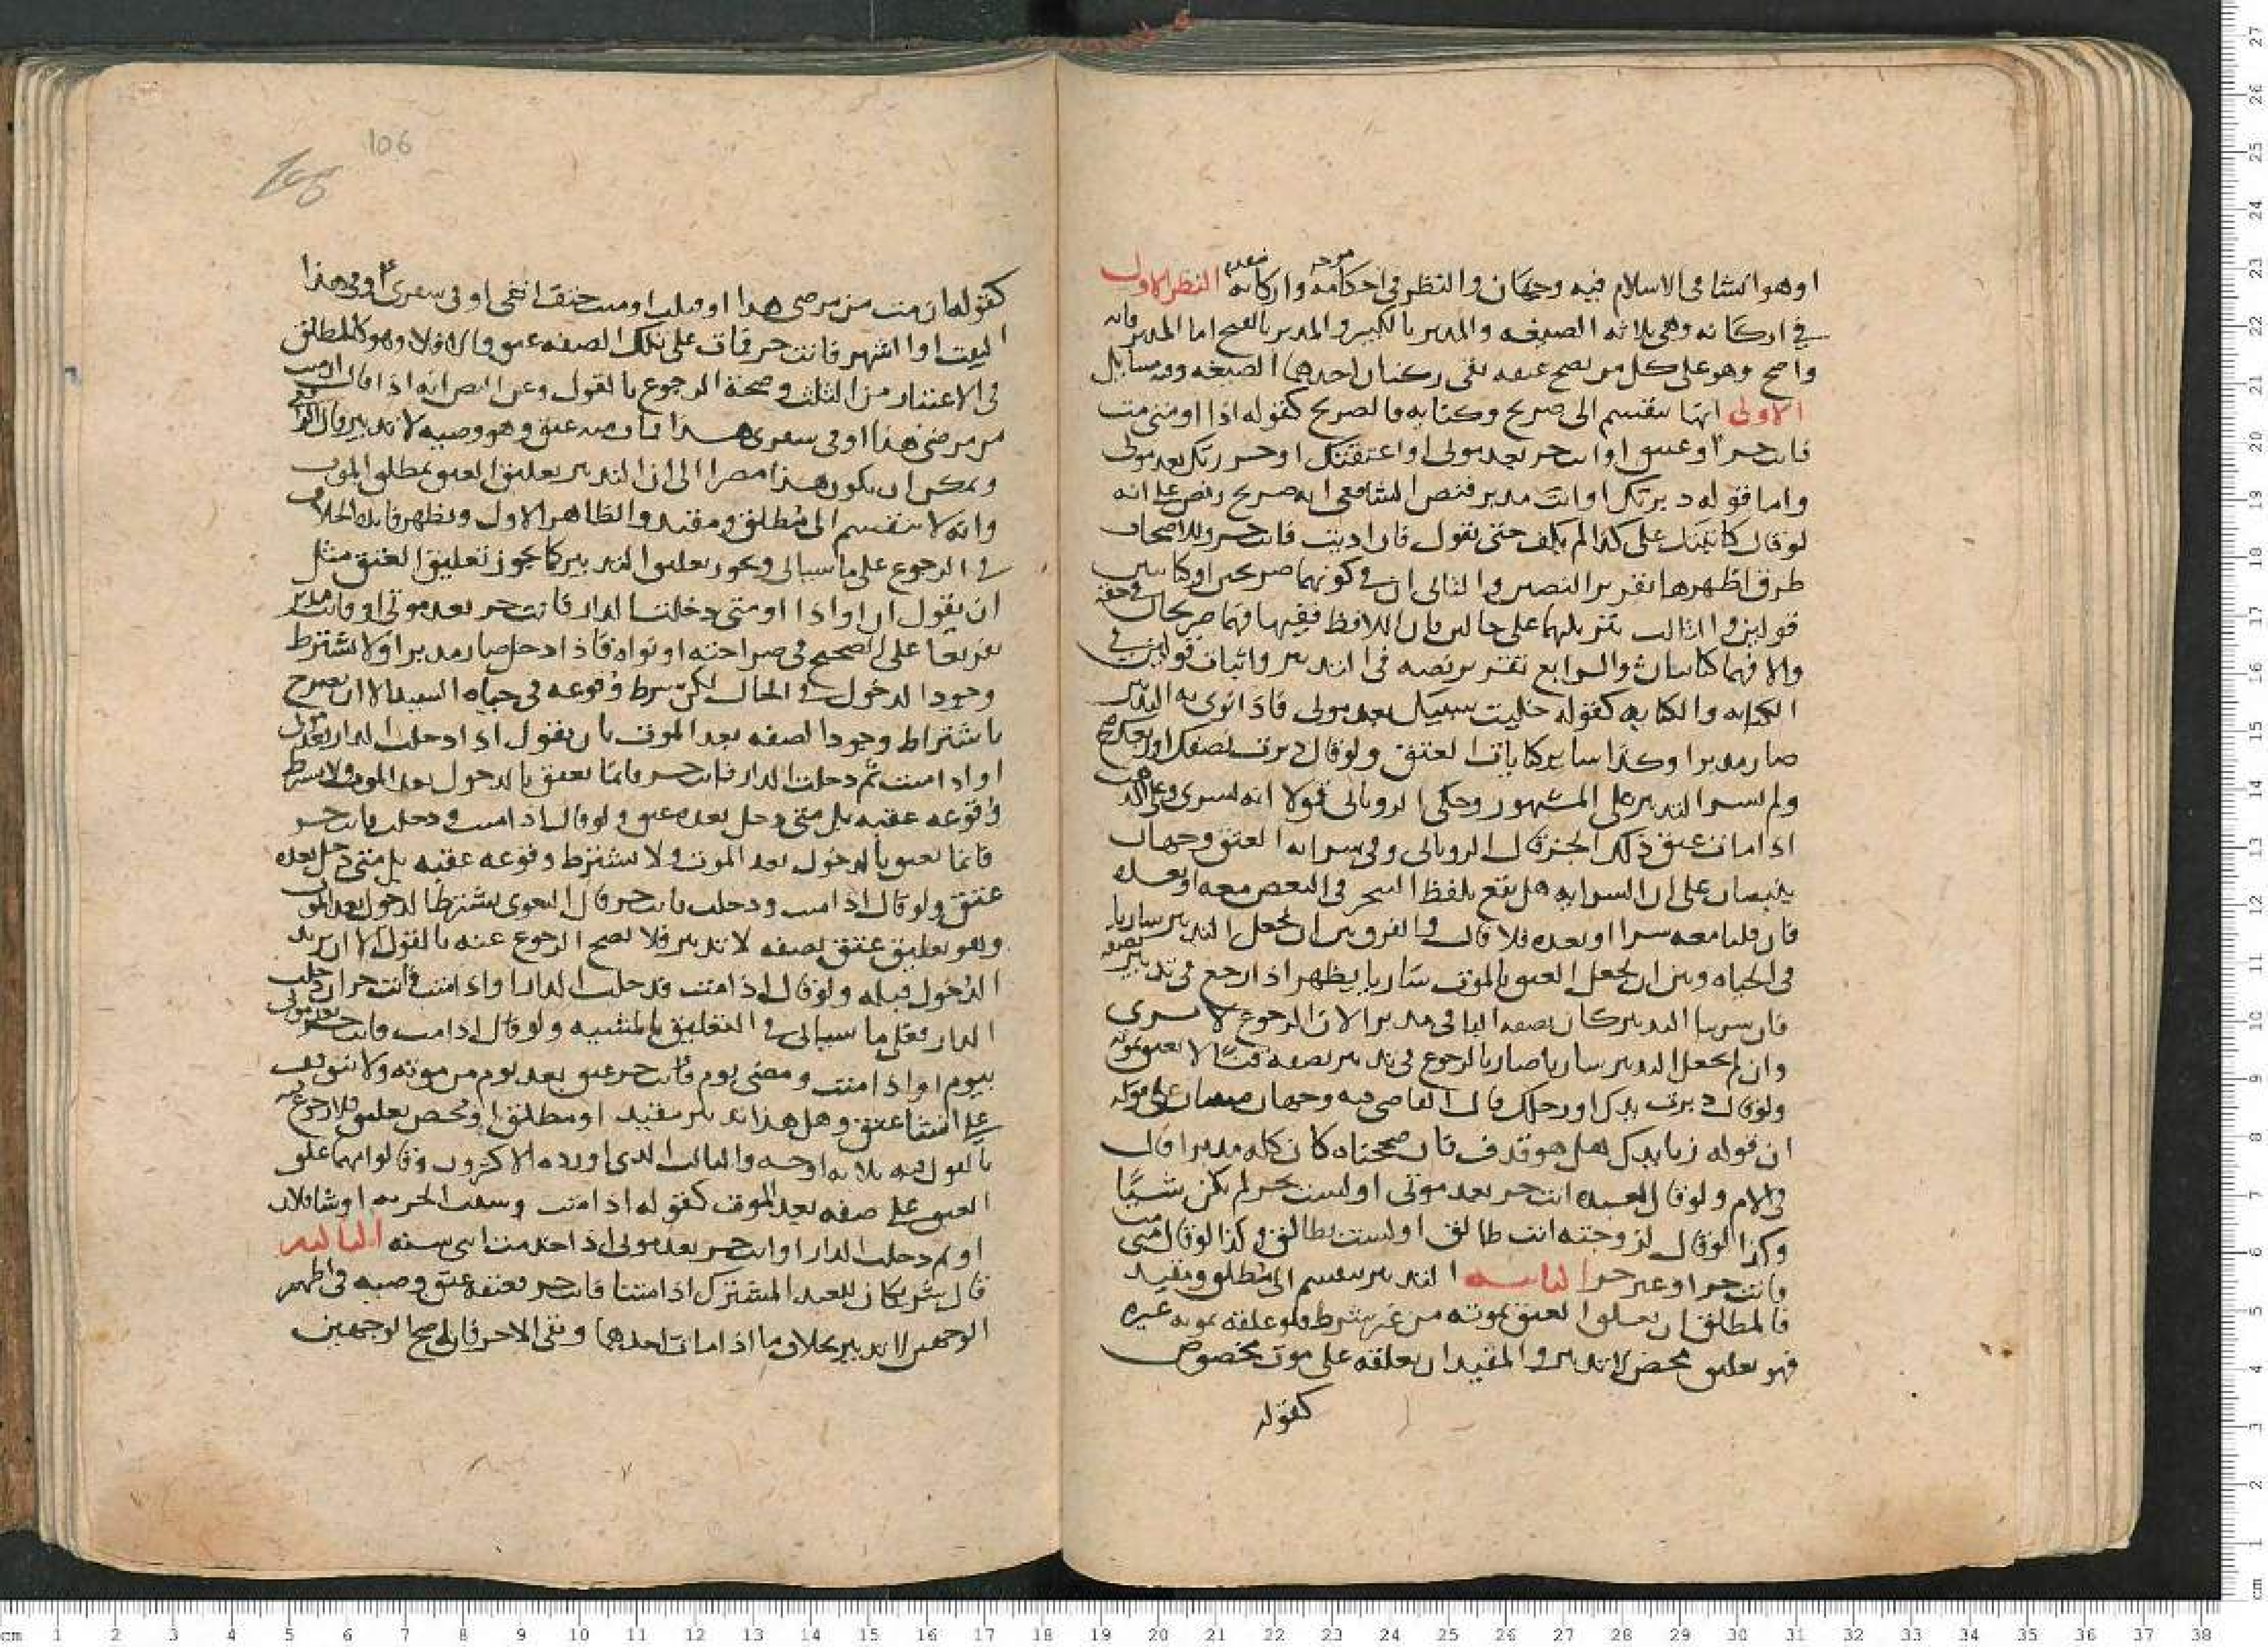 او هو انشا في الاسلام فيه وجهان والنظر في احكامه واركانه النظر الاول
مؤخر مقدم
في اركانه وهي ثلاثة الصيغه والمدبر بالكسر والمدبر بالفتح اما المدبر فانه
واضح وهو على كل من يصح عتقه بقي ركنان احدهما الصيغه وفيه مسايل
الاولى انها تنقسم الى صريح وكنايه فالصريح كقوله اذا او متى مت
فانت حر او عتيق او انت حر بعد موتي او اعتقتك او حررتك بعد موتي
واما قوله دبرتك او انت مدبر فنص الشافعي انه صريح ونص على انه
لو قال كاتبتك على كذا لم يكف حتى يقول فان اديت فانت حر وللاصحاب
طرق اظهرها تقرير النصين والثاني ان في كونهما صريحين او كنايتين
قولين والثالث تنزيلهما على حالين فان اللافظ فقيها فهما صريحان في حقه
والا فهما كنايتان والرابع تقرير نصه في التدبير واثبات قولين في
الكتابه والكنايه كقوله خليت سبيلك بعد موتي فاذا نوى به التدبير
صار مدبرا وكذا ساير كنايات العتق ولو قال دبرت نصفك او ربعك صح
ولم يسر التدبير على المشهور وحكى الروياني قولا انه يسري وعلى المذهب
اذا مات عتق ذلك الجزء قال الروياني وفي سرايه العتق وجهان
ينبنيان على ان السرايه هل تقع بلفظ التنجيز في البعض معه او بعده
فان قلنا معه سرا او بعده فلا قال والفرق بين ان نجعل التدبير ساريا
في الحياه وبين ان نجعل العتق بالموت ساريا يظهر اذا رجع في تدبير نصفه
فان سرينا التدبير كان نصفه الباقي مدبرا لان الرجوع لا يسري
وان لم نجعل التدبير ساريا صار بالرجوع في تدبير نصفه قنا لا يعتق بموته
ولو قال دبرت يدك او رجلك قال القاضي فيه وجهان مبنيان على قوله
ان قوله زنا يدك هل هو قذف فان صححناه كان كله مدبرا قال
في الام ولو قال لعبده انت حر بعد موتي او لست بحر لم يكن شيا
وكذا لو قال لزوجته انت طالق او لست بطالق وكذا لو قال متى مت
فانت حر او غير حر الثانيه التدبير ينقسم الى مطلق ومقيد
فالمطلق ان يعلق العتق بموته من غير شرط فلو علقه بموت غيره
فهو تعليق محض لا تدبير والمقيد ان يعلقه على موت مخصوص
كقوله
106
كقوله ان مت من مرضي هذا او قتلت او مت حتف انفي او في سفري او في هذا
البيت او الشهر فانت حر فمات على تلك الصفه عتق والا فلا وهو كالمطلق
في الاعتبار من الثلث وصحة الرجوع بالقول وعن النص انه اذا قال ان مت
من مرضي هذا او في سفري هذا فانت عتيق وهو وصيه لا تدبير
ويمكن ان يكون هذا مصيرا الى ان التدبير تعليق العتق بمطلق الموت
وانه لا ينقسم الى مطلق ومقيد والظاهر الاول ويظهر فايده الخلاف
في الرجوع على ما سياتي ويجوز تعليق التدبير كما يجوز تعليق العتق مثل
ان يقول ان او اذا او متى دخلت الدار فانت حر بعد موتي او فانت مدبر
تفريعا على الصحيح في صراحته او نواه فاذا دخل صار مدبرا ولا يشترط
وجود الدخول في الحال لكن شرط وقوعه في حياه السيد الا ان يصرح
باشتراط وجود الصفه بعد الموت بان يقول اذا دخلت الدار بعد موتي
او اذا مت ثم دخلت الدار فانت حر فانما يعتق بالدخول بعد الموت ولا يشترط
وقوعه عقبه بل متى دخل بعده عتق ولو قال اذا مت ودخلت فانت حر
فانما يعتق بالدخول بعد الموت ولا يشترط وقوعه عقبه بل متى دخل بعده
عتق ولو قال اذا مت ودخلت فانت حر قال البغوي يشترط الدخول بعد الموت
وهو تعليق عتق بصفه لا تدبير فلا يصح الرجوع عنه بالقول الا ان يريد
الدخول قبله ولو قال اذا مت فدخلت الدار او اذا مت فانت حر ان دخلت
الدار فعلى ما سياتي في التعليق بالمشيه ولو قال اذا مت فانت حر بعد موتي
بيوم او اذا مت ومضى يوم فانت حر عتق بعد يوم من موته ولا يتوقف
على انشا عتق وهل هذا تدبير مقيد او مطلق او محض تعليق فلا رجوع عنه
بالقول فيه ثلاثه اوجه والثالث الذي اورده الاكثرون وقالوا مهما علق
العتق على صفه بعد الموت كقوله اذا مت وشيت الحريه او شا فلان
او ثم دخلت الدار او انت حر بعد موتي اذا خدمت ابني سنه الثالثه
قال شريكان للعبد المشترك اذا متنا فانت حر فعتقه عتق وصيه في اظهر
الوجهين لا تدبير بخلاف ما اذا مات احدهما وبقي الاخر فان اصح الوجهين